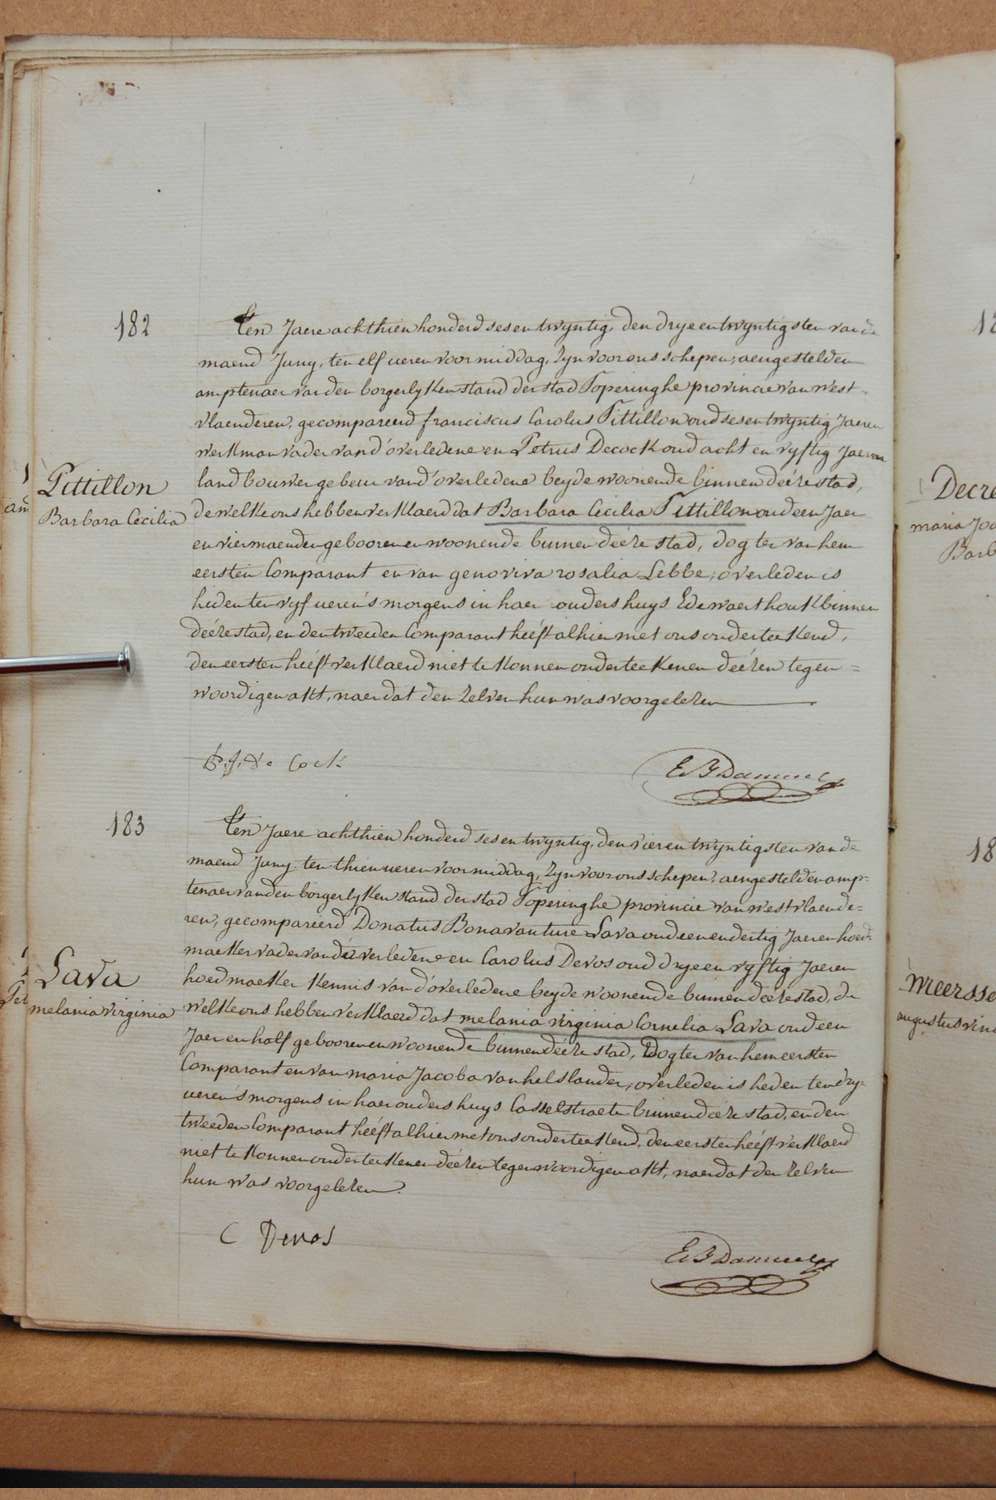 182
Pittillon
Barbara Cecilia
Ten Jaere achthien honderd sesentwyntig, den dryeentwyntigsten van de
maend Juny, ten elf ueren voormiddag, Zyn voor ons schepen, aengestelden
amptenaer van den borgerlyken stand der stad Poperinghe provincie van west-
vlaenderen, gecompareerd franciscus Carolus Pittillon oud sesentwyntig Jaeren
werkman vader van d'overledene en Petrus Decock oud acht en vyftig Jaeren
landbouwer gebeur van d'overledene beyde woonende binnen deéze stad,
de welke ons hebben verklaerd dat Barbara Cecilia Pittillon oud een Jaer
en vier maenden gebooren en woonende binnen deéze stad, dogter van hem
eersten Comparant en van genoviva rosalia Lebbe, overleden is
heden ten vyf ueren 's morgens in haer ouders huys Edewaerthoutk binnen
deéze stad, en den tweeden Comparant heéft alhier met ons onderteekend,
den eersten heéft verklaerd niet te konnen onderteekenen deézen tegen=
woordigen akt, naer dat den zelven hun was voorgelezen
P. J. De Cock
E B J Dammee
183
Lava
melania virginia
Ten Jaere achthien honderd sesentwyntig, den vierentwyntigsten van de
maend Juny ten thien ueren voormiddag, Zyn voor ons schepen, aengestelden amp-
tenaer van den borgerlyken stand der stad Poperinghe provincie van westvlaende=
ren, gecompareerd Donatus Bonavanture Lava oud eenendertig Jaeren hoed
maeker vader van de overledene en Carolus Devos oud dryeen vyftig Jaeren
hoedmaeker kennis van d'overledene beyde woonende binnen deéze stad, de
welke ons hebben verklaerd dat melania virginia Cornelia Lava oud een
Jaer en half gebooren en woonende binnen deéze stad, Dogter van hem eersten
Comparant en van maria Jacoba van helslander, overleden is heden ten dry
ueren 's morgens in haer ouders huys Casselstraete binnen deéze stad, en den
tweeden Comparant heéft alhier met ons onderteekend, den eersten heéft verklaerd
niet te konnen onderteekenen deézen tegenwoordigen akt, naer dat den zelven
hun was voorgelezen.
C Devos
Decre
maria Joa
Barb
18
Meersse
augustus vin